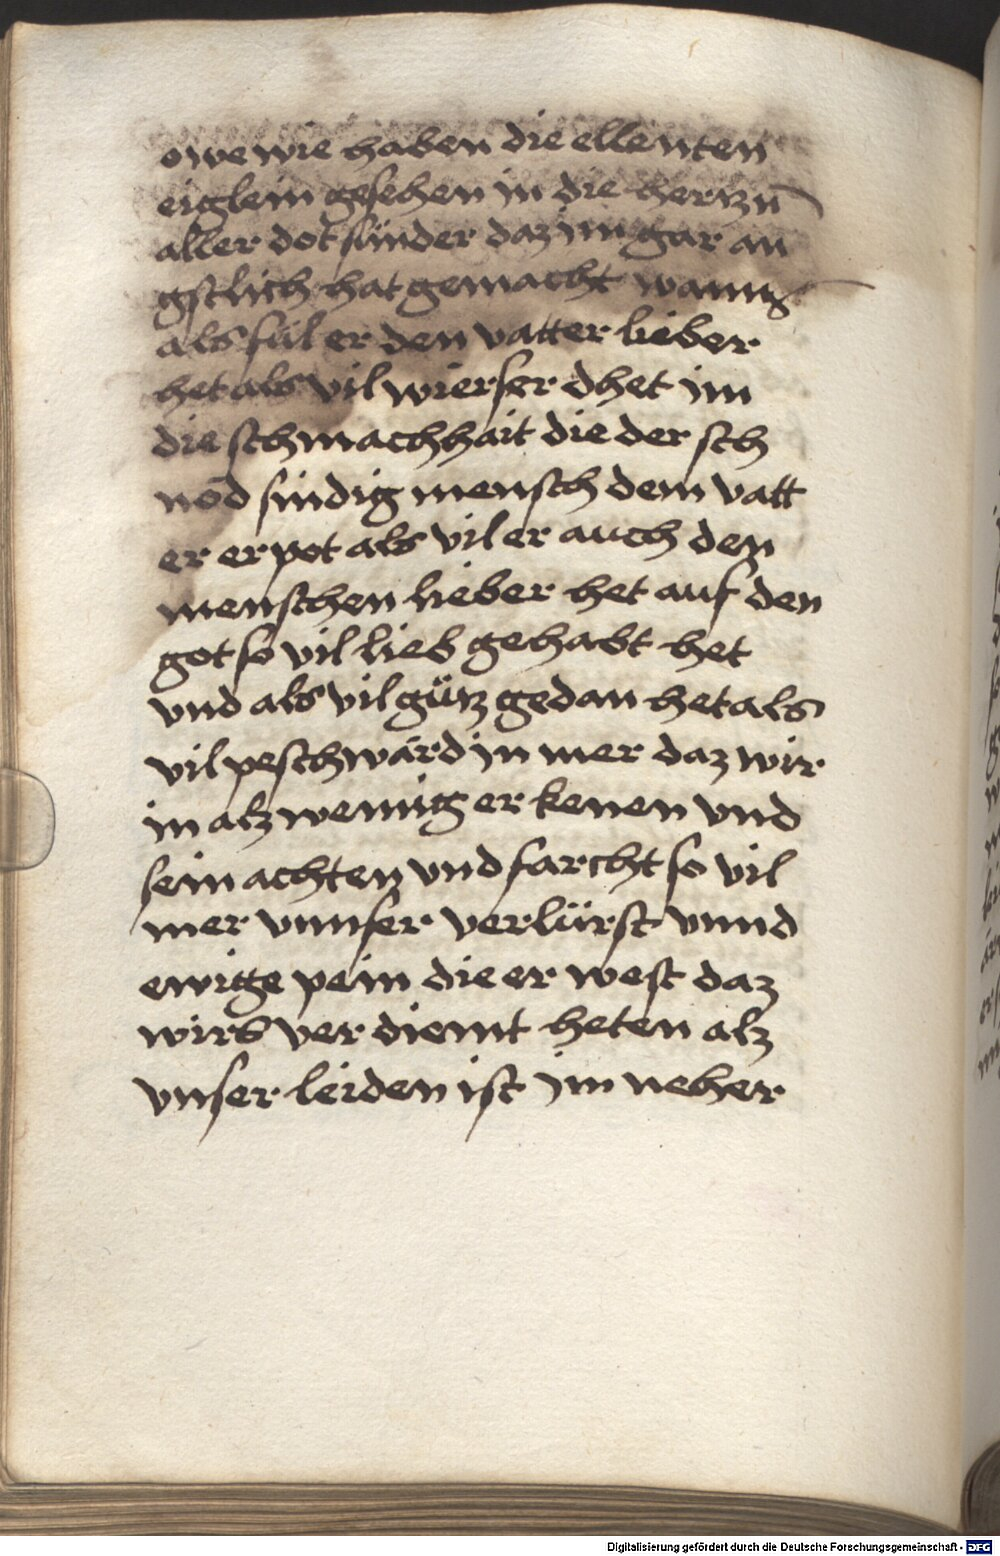 owe wie haben die ellenten
eiglein gesehen in die hertzn̄
aller dot sünder daz im gar an
gstlich hat gemacht wann
als fül er den vatter lieber
het als vil wierser dhet im
die schmachhait die der sch
nöd sindig mensch dem vatt
er er pot als vil er auch den
menschen lieber het auf den
got so vil lieb gehabt het
vnd als vil gütz gedan het als
vil peschwärd in mer daz wir
in alz wennig er kenen vnd
sein achten vnd farcht so vil
mer vnnser verlürst vnnd
ewige pein die er west daz
wirs ver diennt heten alz
vnser leiden ist im neher
Digitalisierung gefördert durch die Deutsche Forschungsgemeinschaft - DFG